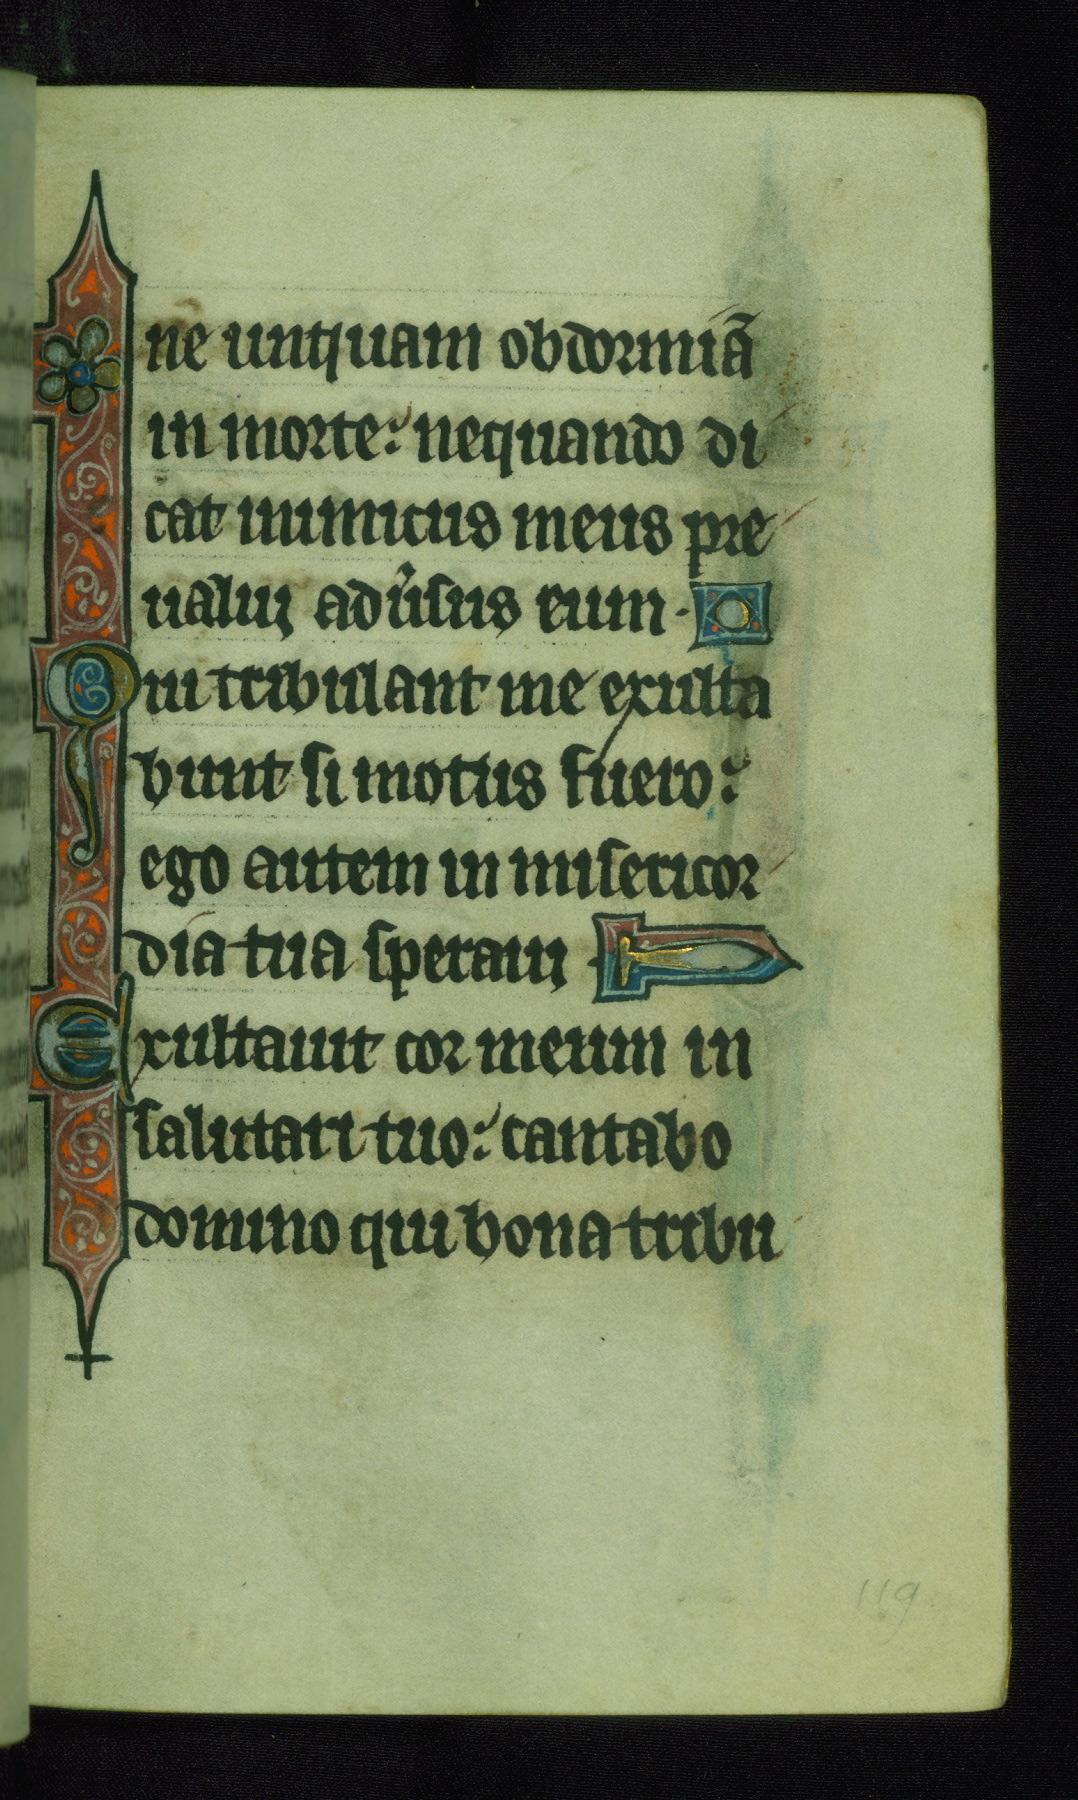 ne unquam obdormiã
in morte: nequando di
cat inimicus meus pre
ualui aduͥsus eum.
Qui tribulant me exulta
bunt si motus fuero:
ego autem in misericor
dia tua speraui.
Exultauit cor meum in
salutari tuo: cantabo
domino qui bona tribu
119